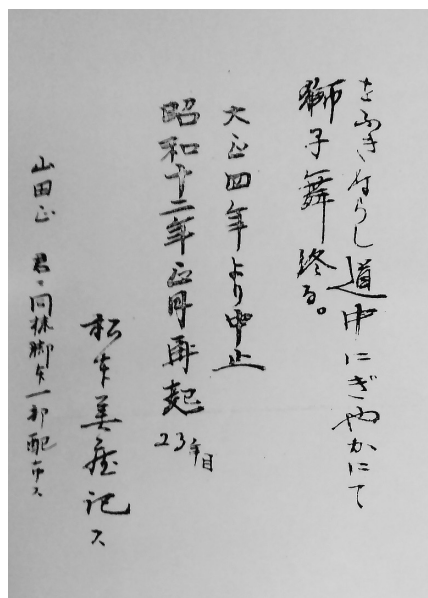 をふきならし道中にぎやかにて
獅子舞終る。
大正四年より中止
昭和十二年正月再起 23年目
松本美 記ス
山田正 君 同様脚本一部配布ス